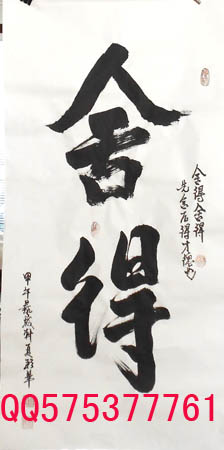 舍得
舍得舍得
先舍后得才
甲午
QQ575377761